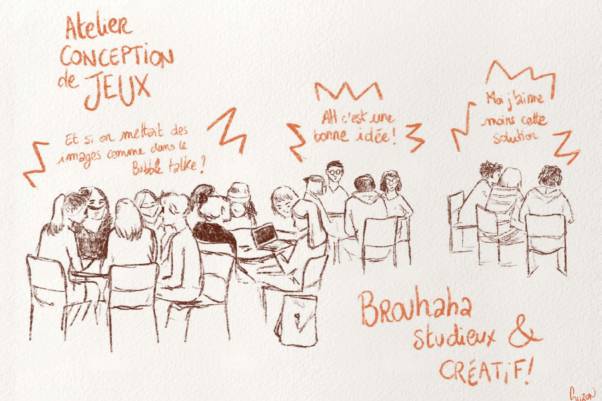 Atelier
CONCEPTION
de JEUX
Et si on mettait des
images comme dans le
Bubble talke ?
AH c'est une
bonne idée !
Moi j'aime
moins cette
solution
Brouhaha
studieux &
CRÉATIF !